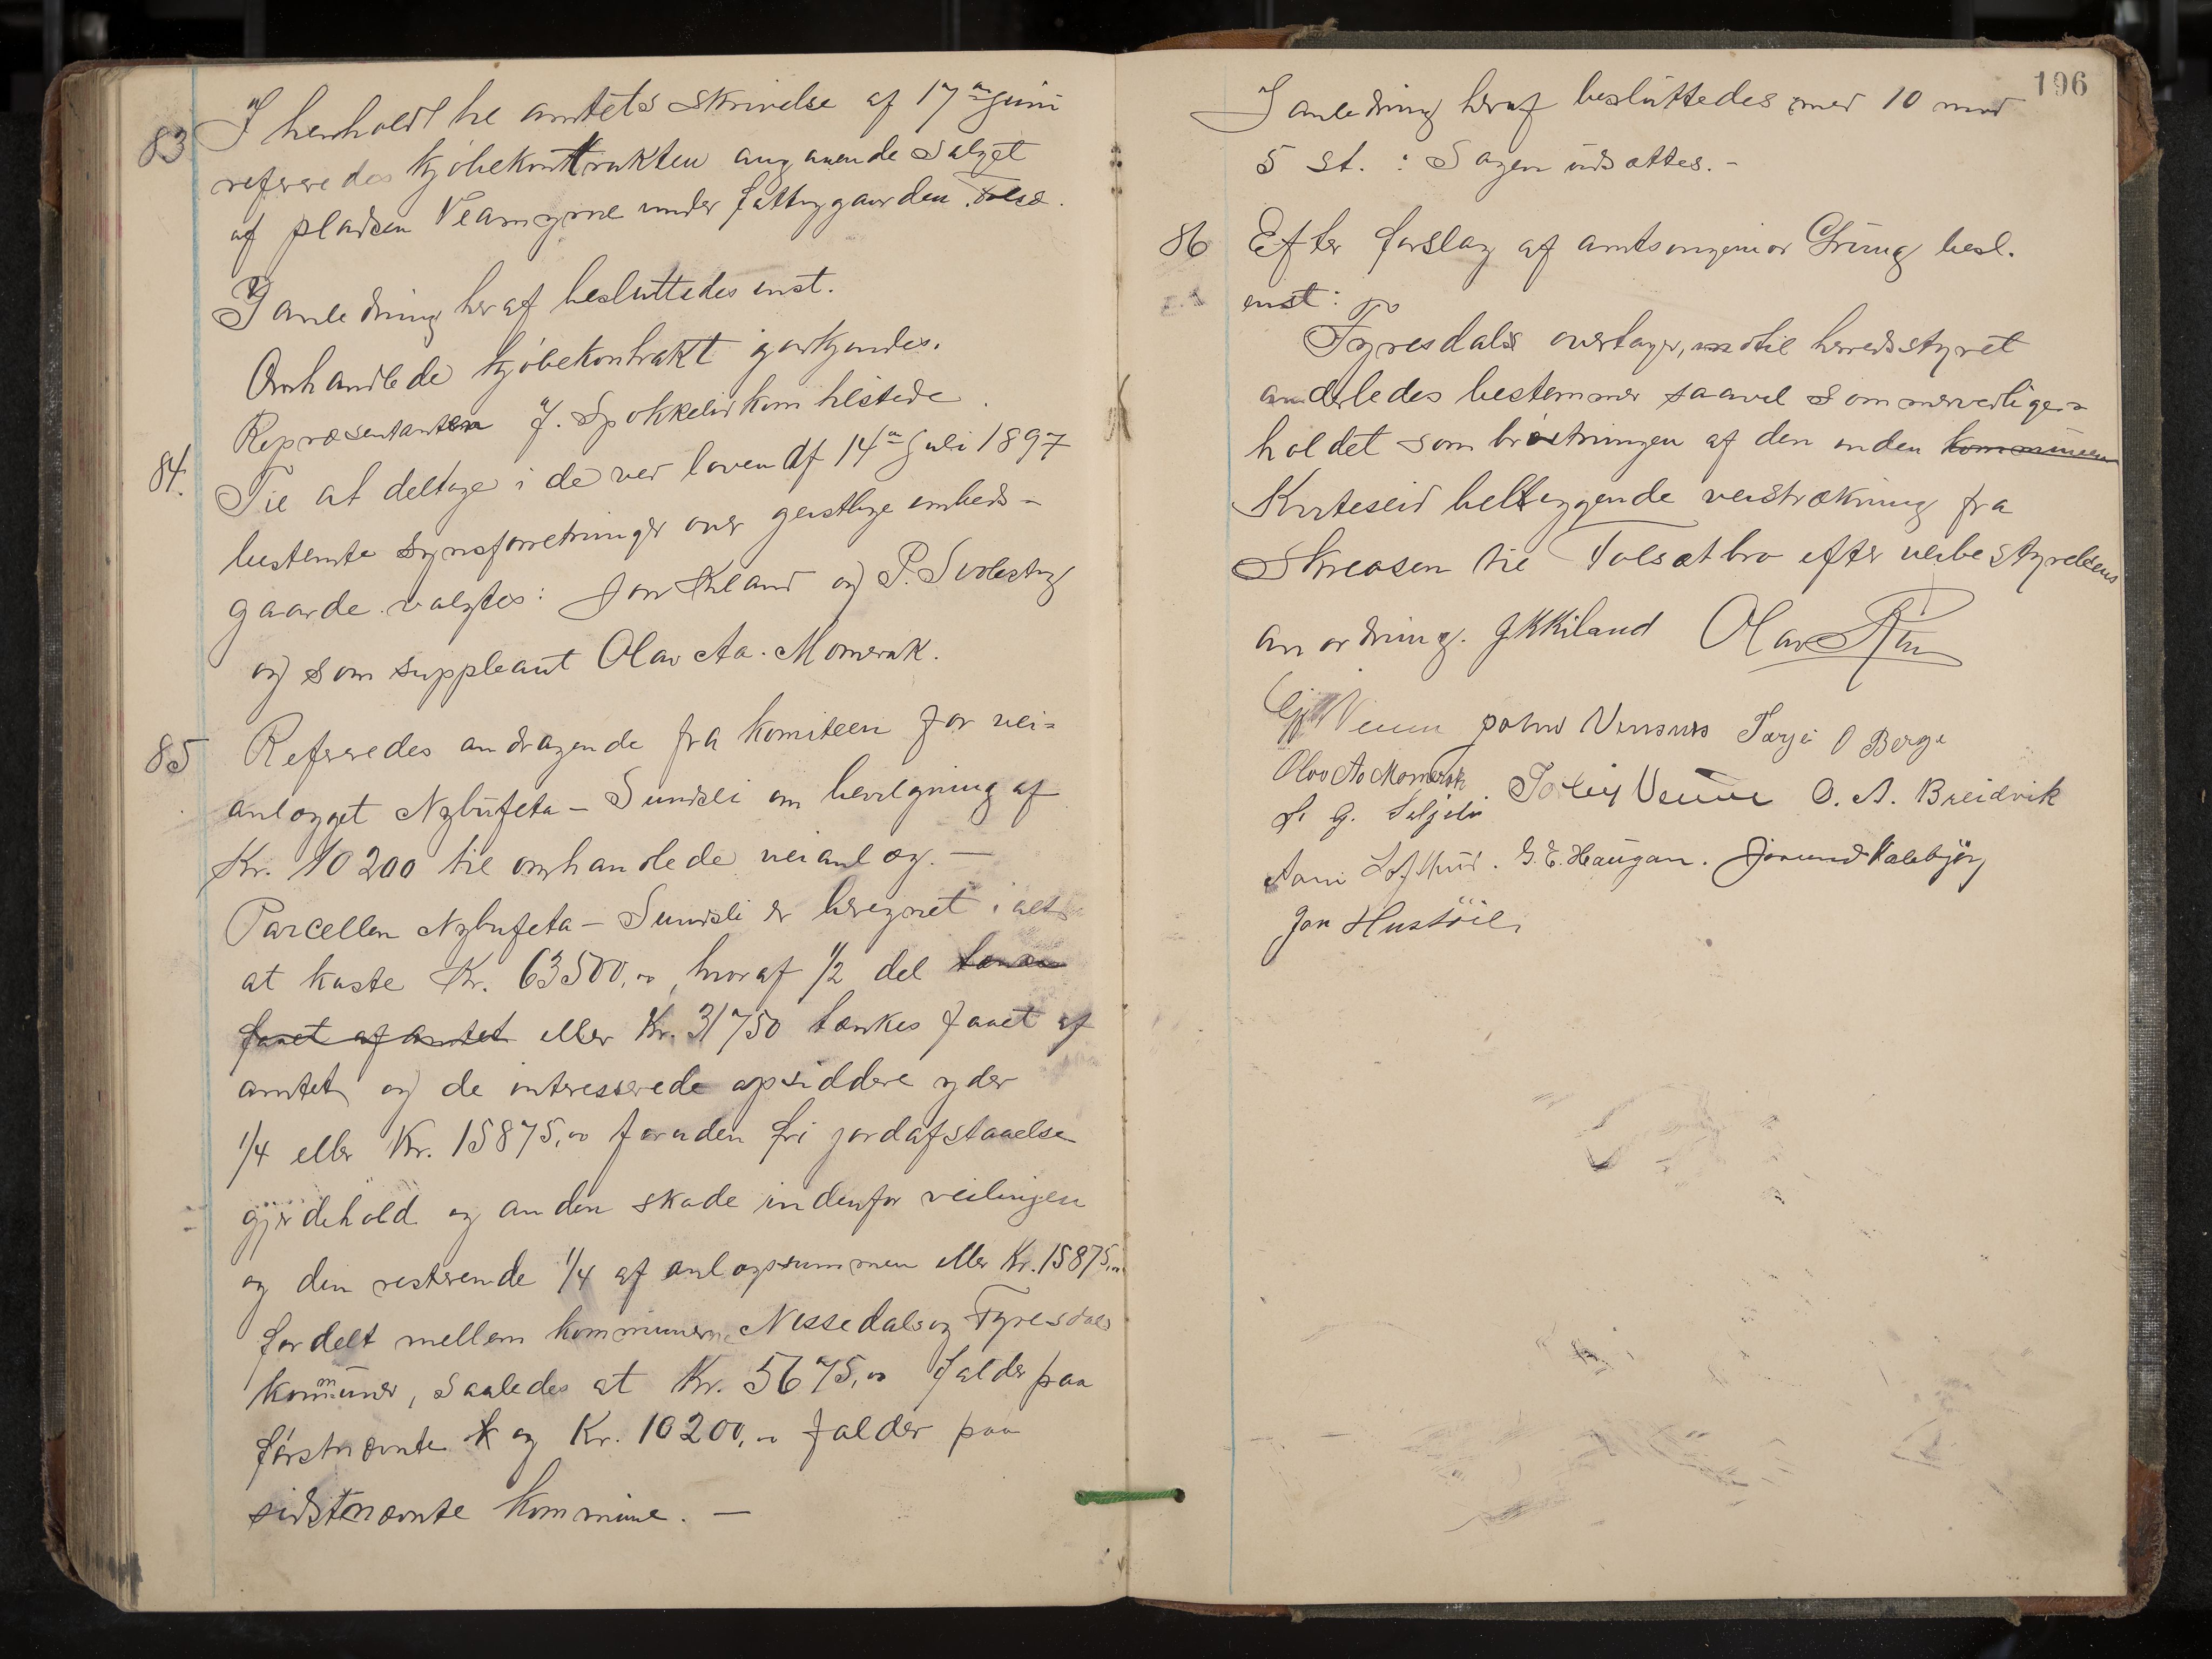 83 I henhold til amtets skrivelse af 17de Juni
refereredes kjøbekontrakten angaaende salget
af pladsen Veamyrne under fattiggaarden Tolsæ.
I anledning heraf besluttedes enst.
Omhandlede kjøbekontrakt godkjendes.
Repræsentanten J. Spokkelid kom tilstede.
84. Til at deltage i de ved loven af 14de Juli 1897
bestemte synsforretninger over geistlige embeds-
gaarde valgtes: Jon Kiland og P. Svolestog
og som suppleant Olav Aa. Momrak.
85 Refereredes andragende fra komiteen for vei-
anlægget Nybufeta - Sundsli om bevilgning af
Kr. 10200 til omhandlede veianlæg. —
Parcellen Nybufeta - Sundsli er beregnet i alt
at koste Kr. 63500,00, hvoraf 1/2 del
faaet af amtet eller Kr. 31750 tænkes faaet af
amtet og de interesserede opsiddere yder
1/4 eller Kr. 15875,00 foruden fri jordafstaaelse
gjerdehold og anden skade indenfor veilinjen
og den resterende 1/4 af anlægssummen eller Kr. 15875,00
fordelt mellem kommunerne Nissedals og Tyresdals
kommuner, saaledes at Kr. 5675,00 falder paa
førstnævnte k og Kr. 10200,00 falder paa
sidstnævnte kommune. —
196
I anledning heraf besluttedes med 10 mod
5 st. : Sagen udsættes. -
86 Efter forslag af amtsingeniør Grung besl.
enst:
Tyresdals overtager, indtil herredsstyret
anderledes bestemmer saavel sommerveilige-
holdet som brøitningen af den inden kommunen
Kviteseid beliggende veistrækning fra
Skreosen til Tolsæt bro efter veibestyrelsens
anordning. JKKiland Olav
Veum Tarjei O Berge
Olav Aa Momrak. Veum O. A. Breidvik
G. Seljelid
Lofthus. G. E. Haugan.
Jon Hustöil